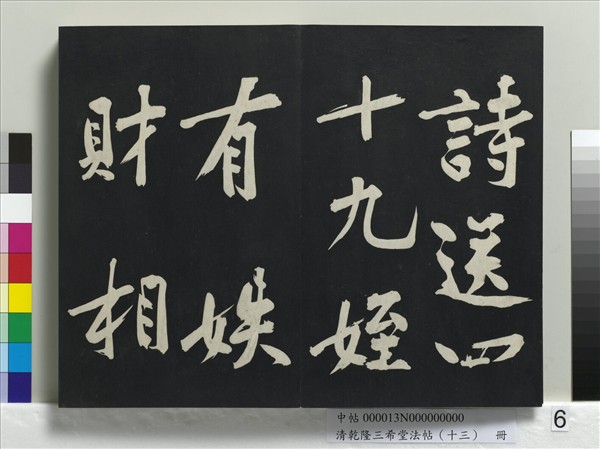 詩送四
十九姪
有妷
財相
中帖 000013N000000000
清乾隆三希堂法帖（十三） 冊
6